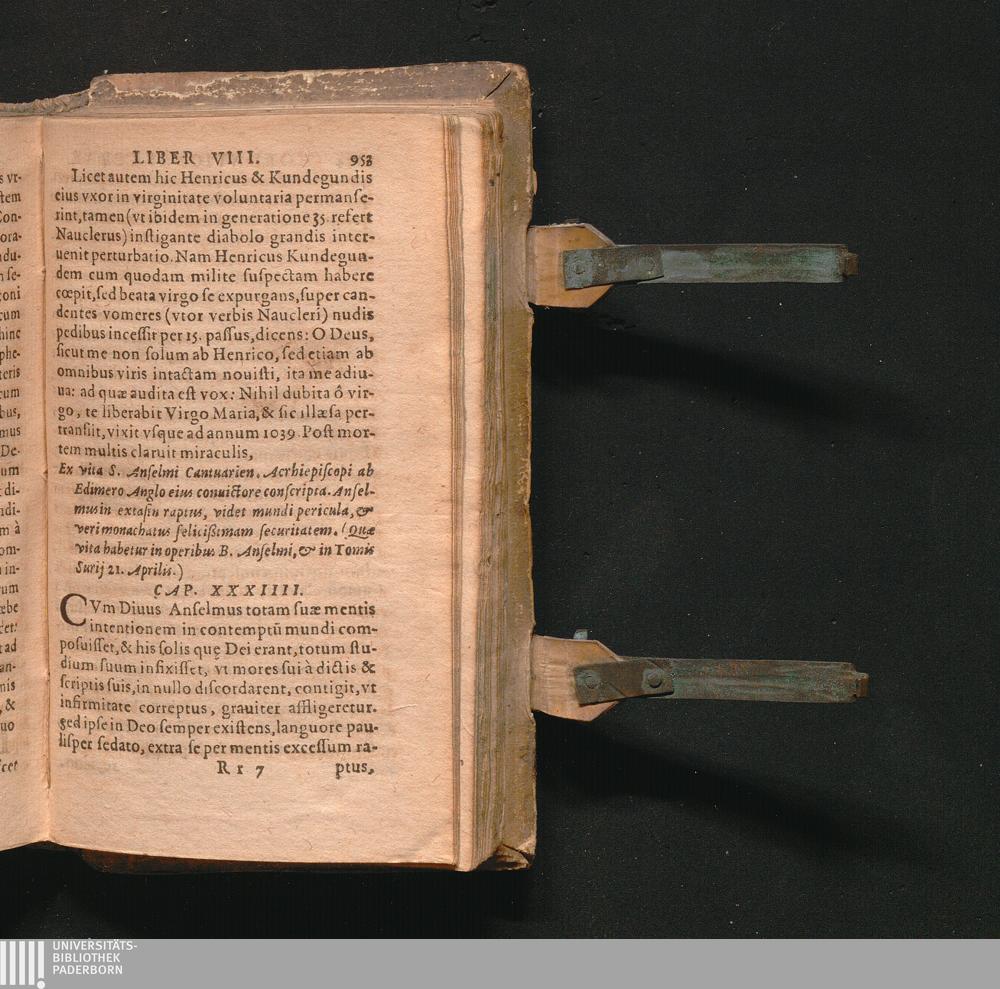 LIBER VIII. 953
Licet autem hic Henricus & Kundegundis
eius vxor in virginitate voluntaria permanſe-
rint, tamen (vt ibidem in generatione 35. refert
Nauclerus) inſtigante diabolo grandis inter-
uenit perturbatio. Nam Henricus Kundegun-
dem cum quodam milite ſuſpectam habere
cœpit, ſed beata virgo ſe expurgans, ſuper can-
dentes vomeres (vtor verbis Naucleri) nudis
pedibus inceſſit per 15. paſſus, dicens: O Deus,
ſicut me non ſolum ab Henrico, ſed etiam ab
omnibus viris intactam nouiſti, ita me adiu-
ua: ad quæ audita eſt vox: Nihil dubita ô vir-
go, te liberabit Virgo Maria, & ſic illæſa per-
tranſiit, vixit vſque ad annum 1039 Poſt mor-
tem multis claruit miraculis,
Ex vita S. Anſelmi Cantuarien. Acrhiepiſcopi ab
Edimero Anglo eius conuictore conſcripta. Anſel-
mus in extaſin raptus, videt mundi pericula, &
veri monachatus feliciſſimam ſecuritatem. (Quæ
vita habetur in operibus B. Anſelmi, & in Tomis
Surij 21. Aprilis.)
CAP. XXXIIII.
CVm Diuus Anſelmus totam ſuæ mentis
intentionem in contemptū mundi com-
poſuiſſet, & his ſolis quę Dei erant, totum ſtu-
dium ſuum infixiſſet, vt mores ſui à dictis &
ſcriptis ſuis, in nullo diſcordarent, contigit, vt
infirmitate correptus, grauiter affligeretur.
ſed ipſe in Deo ſemper exiſtens, languore pau-
liſper ſedato, extra ſe per mentis exceſſum ra-
Rr 7 ptus,
UNIVERSITÄTS-
BIBLIOTHEK
PADERBORN